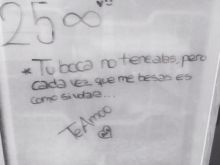 25 ∞
* Tu boca no tiene alas, pero
cada vez que me besas es
como si volara...
Te Amoo